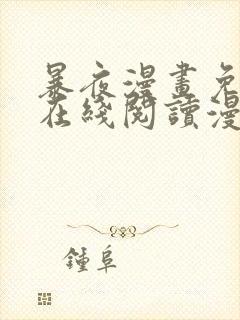 暴夜漫畫免
在綫閱讀漫
鍾阜